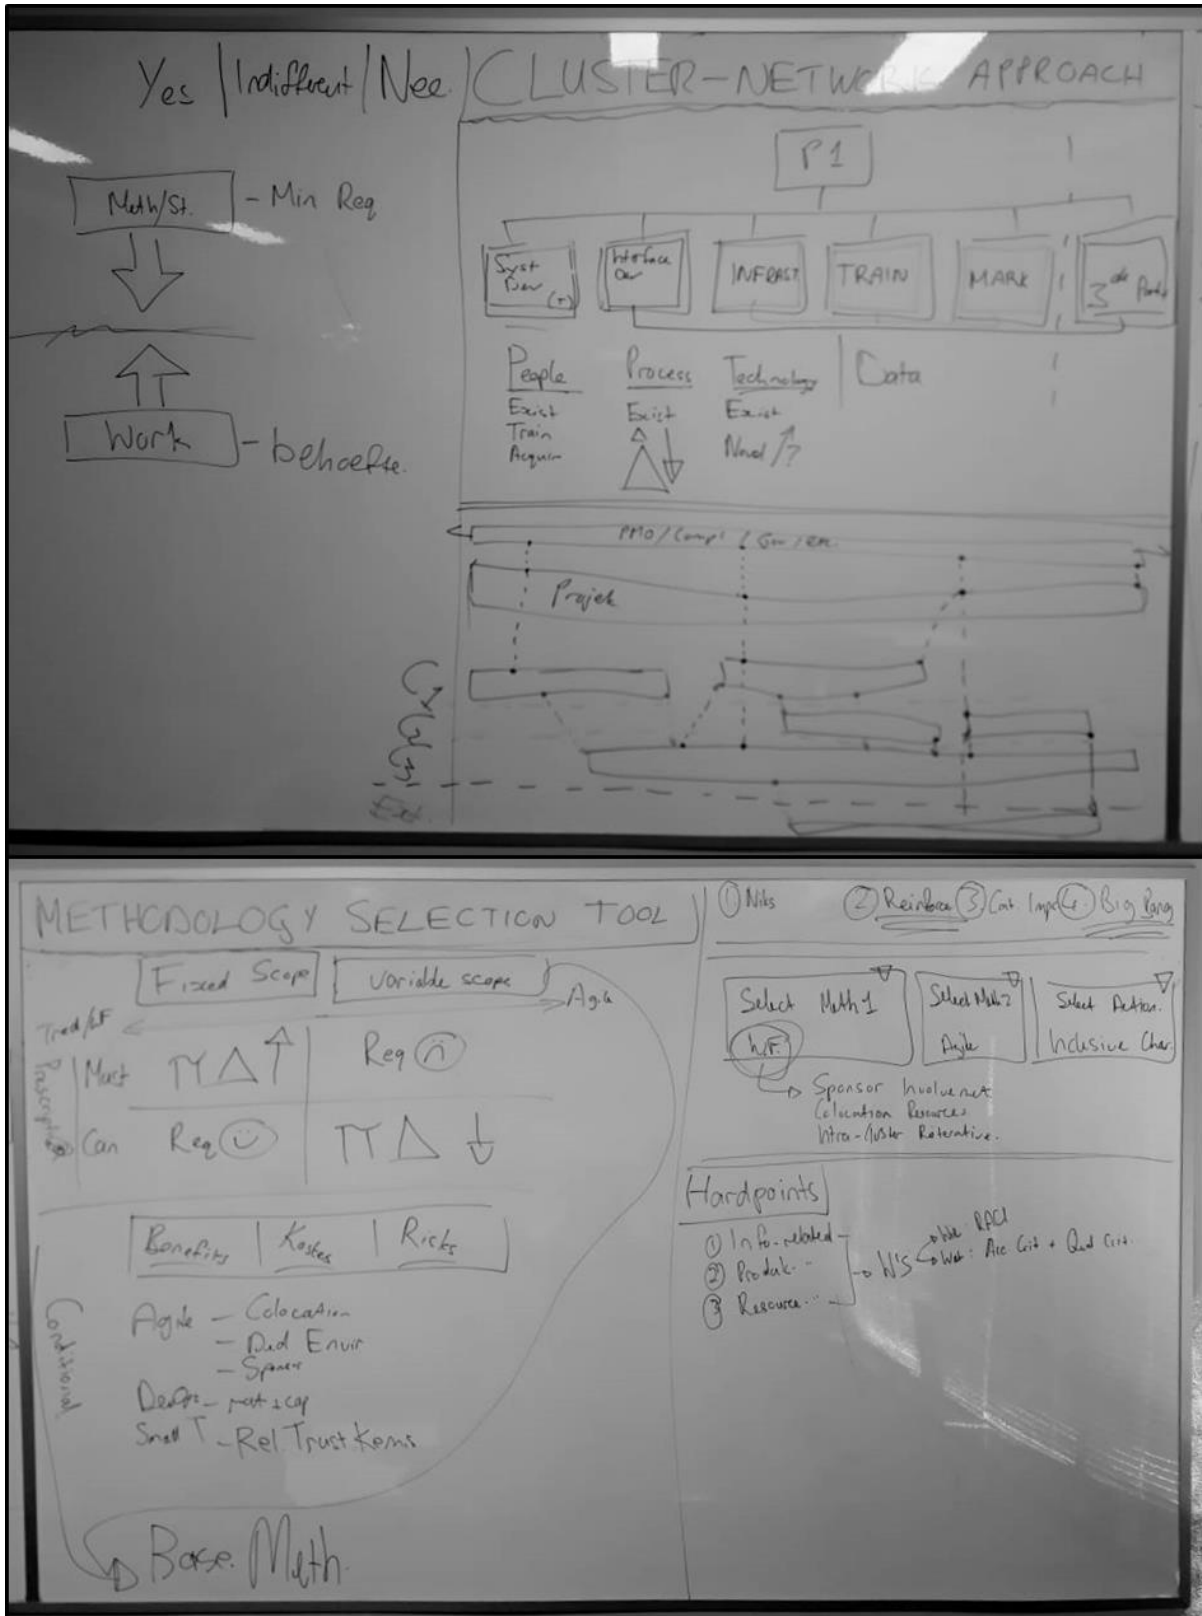 Yes / Indifferent / Nee
CLUSTER-NETWORK APPROACH
Meth/St. - Min Req
Work - behoefte.
P1
Syst
Dev
Interface
Dev
INFRAST
TRAIN
MARK
3de
People
Exist
Train
Process
Exist
Technology
Exist
Novel /?
Data
PMO/Compl
Projek
METHODOLOGY SELECTION TOOL
Fixed Scope
Variable scope
Agile
Must
Req
Can
Req
Benefits | Kostes | Risks
Agile - Colocation
- Ded Envir
- Sponsor
Small T - Rel Trust Kennis
Conditional
Base Meth.
① Niks
② Reinforce
③ Cont. Impr
4. Big Bang
Select Meth 1
Select Meth 2
Agile
Select Action.
Inclusive Char.
Sponsor Involvement
Colocation Resources
Intra-Cluster
Hardpoints
① Info-related
② Produk
③ Resource
W's
Wie: RACI
Wat: Acc Crit + Qual Crit.